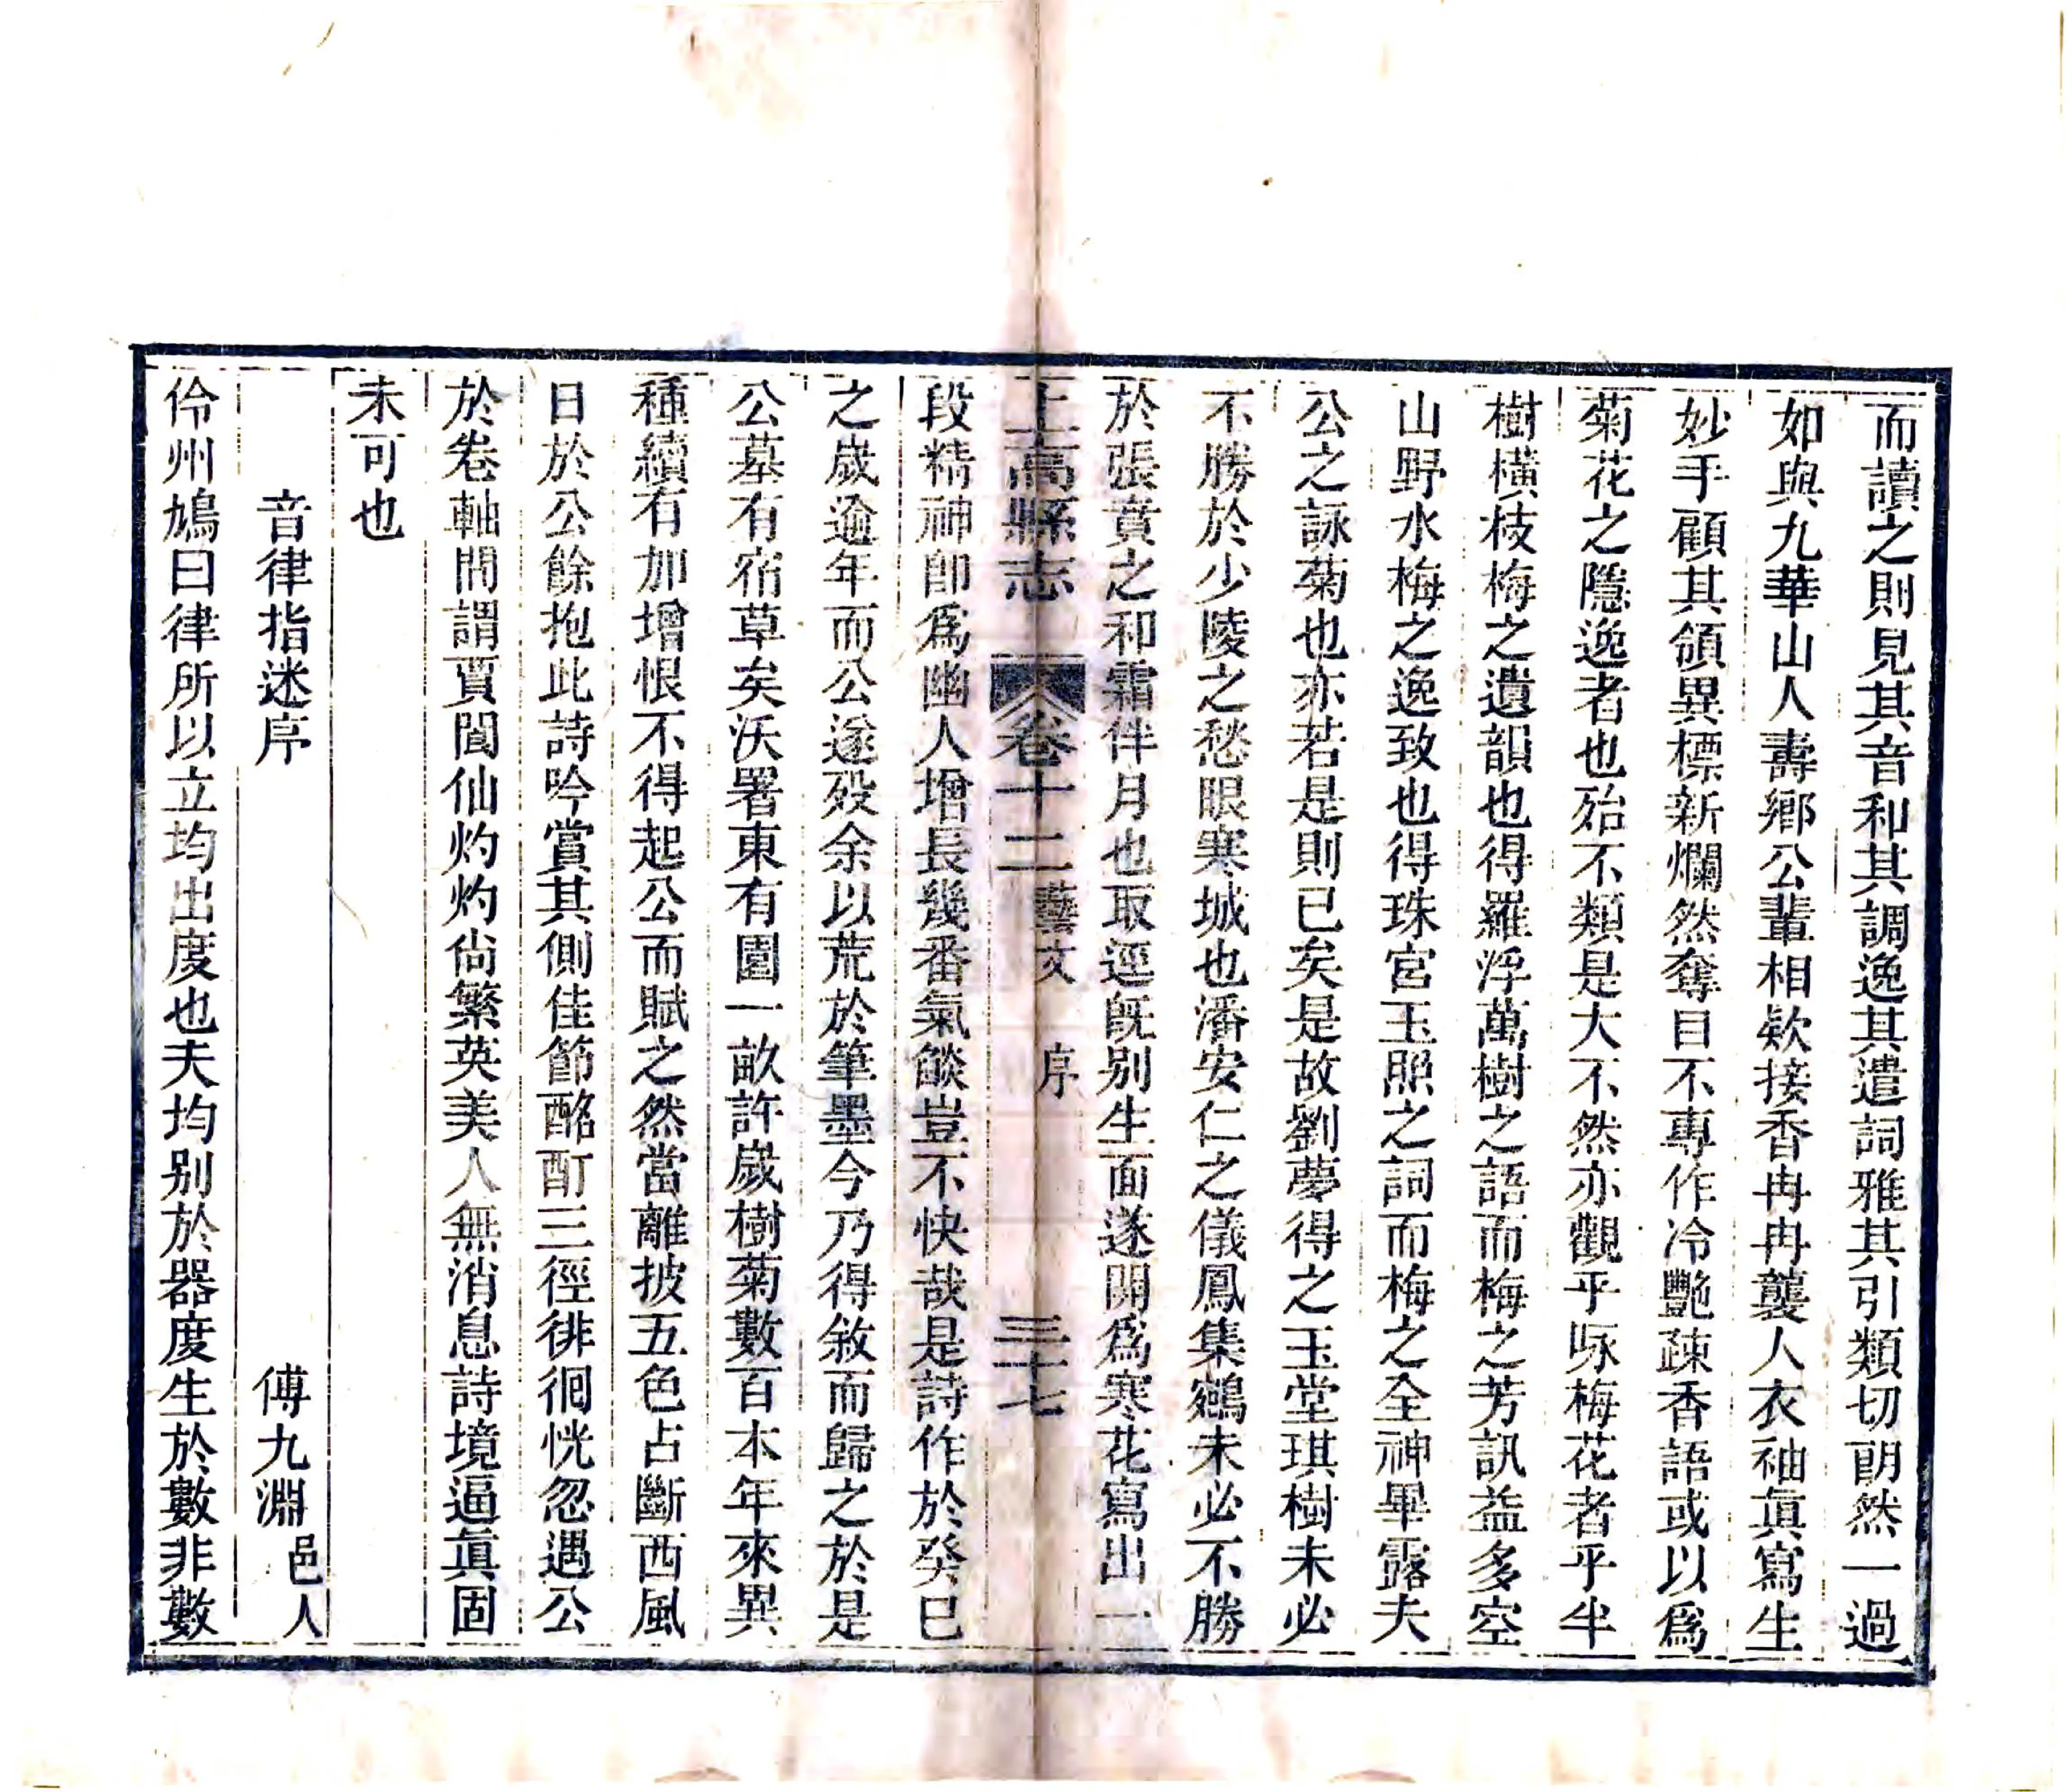 而讀之則見其音和其調逸其遣詞雅其引類切朗然一過
如與九華山人壽鄉公輩相欵接香冉冉襲人衣袖眞寫生
妙手顧其領異標新爛然奪目不專作冷艷疎香語或以爲
菊花之隱逸者也殆不類是大不然亦觀乎咏梅花者乎半
樹橫枝梅之遺韻也得羅浮萬樹之語而梅之芳訊益多空
山野水梅之逸致也得珠宮玉照之詞而梅之全神畢露夫
公之詠菊也亦若是則已矣是故劉夢得之玉堂琪樹未必
不勝於少陵之愁眼寒城也潘安仁之儀鳳集鵷未必不勝
於張賁之和霜伴月也取逕既别生面遂開爲寒花寫出一
段精神卽爲幽人增長幾番氣燄豈不快哉是詩作於癸巳
之歲逾年而公遂歿余以荒於筆墨今乃得敘而歸之於是
公墓有宿草矣沃署東有園一畝許歲樹菊數百本年來異
種續有加增恨不得起公而賦之然當離披五色占斷西風
日於公餘抱此詩吟賞其側佳節酩酊三徑徘徊恍忽遇公
於卷軸間謂賈閬仙灼灼尙繁英美人無消息詩境逼眞固
未可也
音律指迷序 傅九淵 邑人
伶州鳩曰律所以立均出度也夫均别於器度生於數非數
上高縣志 卷十二 藝文 序 三十七